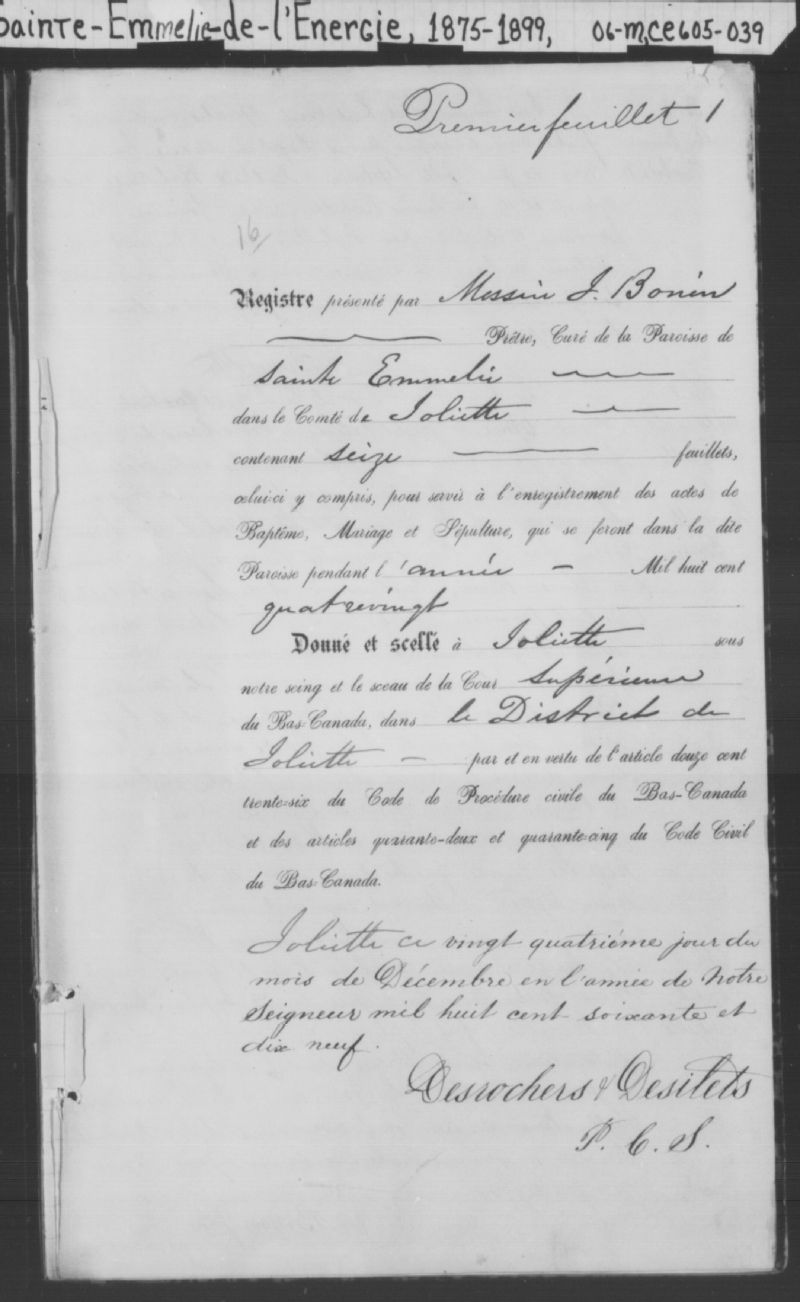 Sainte-Emmelie-de-l'Energie, 1875-1899, 06-M,CE605-039
Premier feuillet 1
16
Registre présenté par Messire J. Bonin
Prêtre, Curé de la Paroisse de
Sainte Emmelie
dans le Comté de Joliette
contenant seize feuillets,
celui-ci y compris, pour servir à l'enregistrement des actes de
Baptême, Mariage et Sépulture, qui se feront dans la dite
Paroisse pendant l'année – Mil huit cent
quatrevingt
Donné et scellé à Joliette sous
notre seing et le sceau de la Cour Supérieure
du Bas-Canada, dans le District de
Joliette – par et en vertu de l'article douze cent
trente-six du Code de Procédure civile du Bas-Canada
et des articles quarante-deux et quarante-cinq du Code Civil
du Bas-Canada.
Joliette ce vingt quatriéme jour du
mois de Décembre en l'année de Notre
Seigneur mil huit cent soixante et
dix neuf.
Desrochers & Desilets
P. C. S.